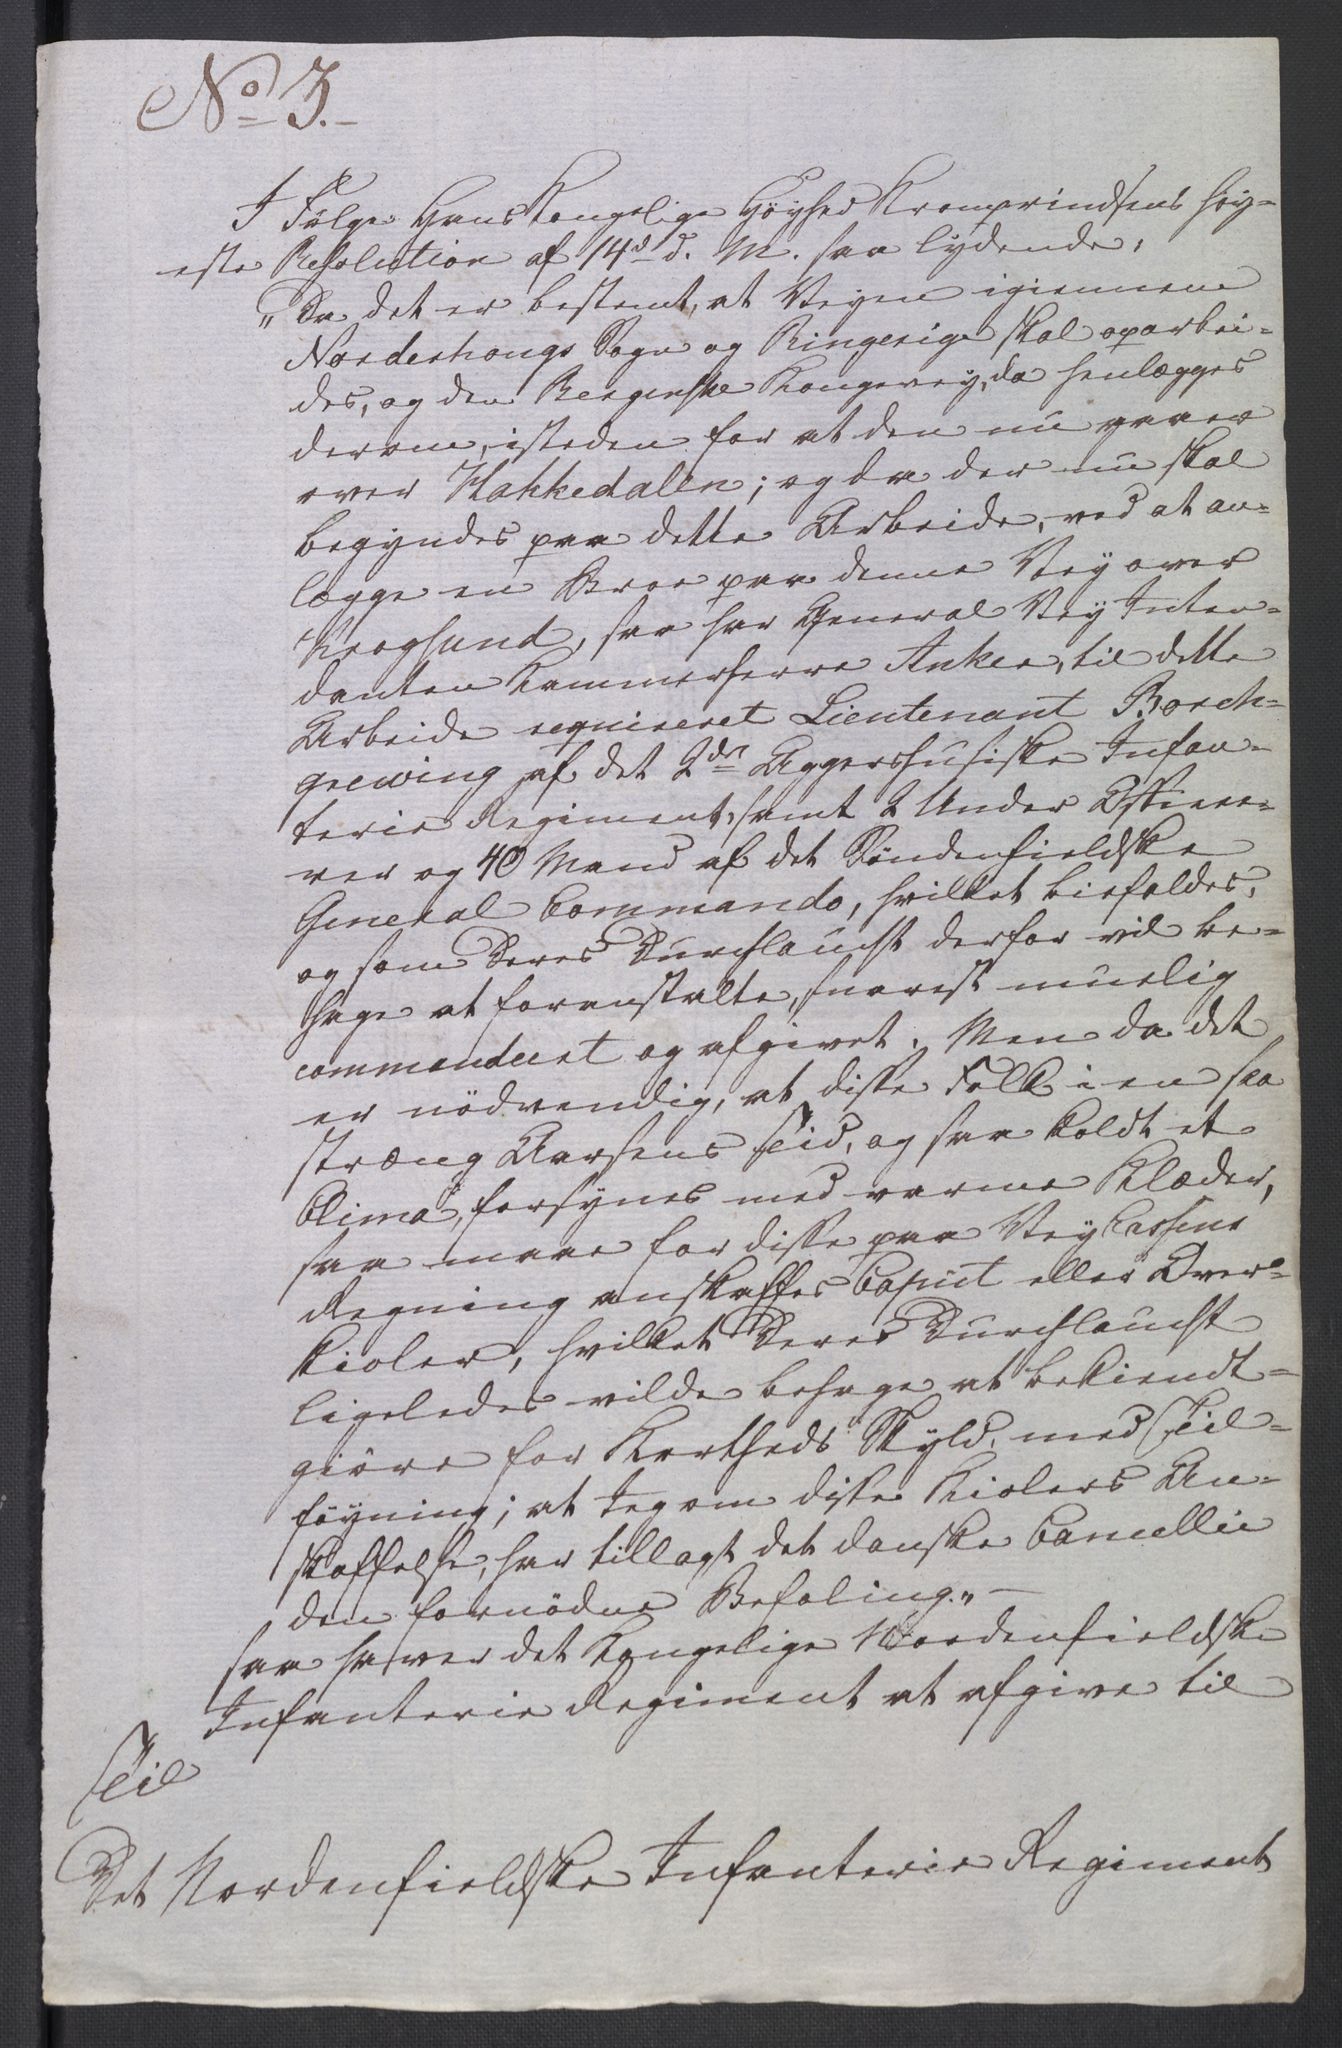 No 3.
I Følge Hans Kongelige Høyhed Kronprindsens høy-
este Resolution af 14d d. M. saa lydende:
"Da det er bestemt, at Veyen igiennem
Norderhougs Sogn og Ringerige skal oparbei-
des, og den Bergenske Kongevey, da henlægges
derom, isteden for at den nu gaaer
over Hakkedalen; og da der nu skal
begyndes paa dette Arbeide, ved at an-
lægge en Broe paa denne Vey over
Krogsund, saa har General Vey Inten-
danten Kammerherre Anker, til dette
Arbeide requireret Lieutenant Borch-
grewing af det 2det Aggershusiske Infan-
terie Regiment, samt 2 Under Officee-
rer og 40 Mand af det Søndenfieldske
General Commando, hvilket biefaldes,
og som Deres Durchlaucht derfor vil be-
hage at foranstalte, snarest muelig
commandeert og afgivet. Men da det
er nödvendig, at disse Folk i en saa
stræng Aarsens Tid, og saa koldt et
Clima, forsynes med varme Klæder,
saa maae for disse paa Vey Cassens
Regning anskaffes Caput eller Over-
kioler, hvilket Deres Durchlaucht
ligeledes vilde behage at bekiendt-
giöre for Kortheds Skyld, med Til-
föyning; at Jeg om disse Kiolers An-
skaffelse, har tillagt det danske Cancellie
den fornödne Befaling." —
saa haver det Kongelige Nordenfieldske
Infanterie Regiment at afgive til
Til
Det Nordenfieldske Infanterie Regiment